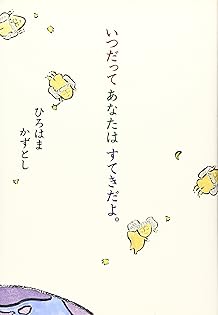 いつだって あなたは すてきだよ。
ひろはま
かずとし